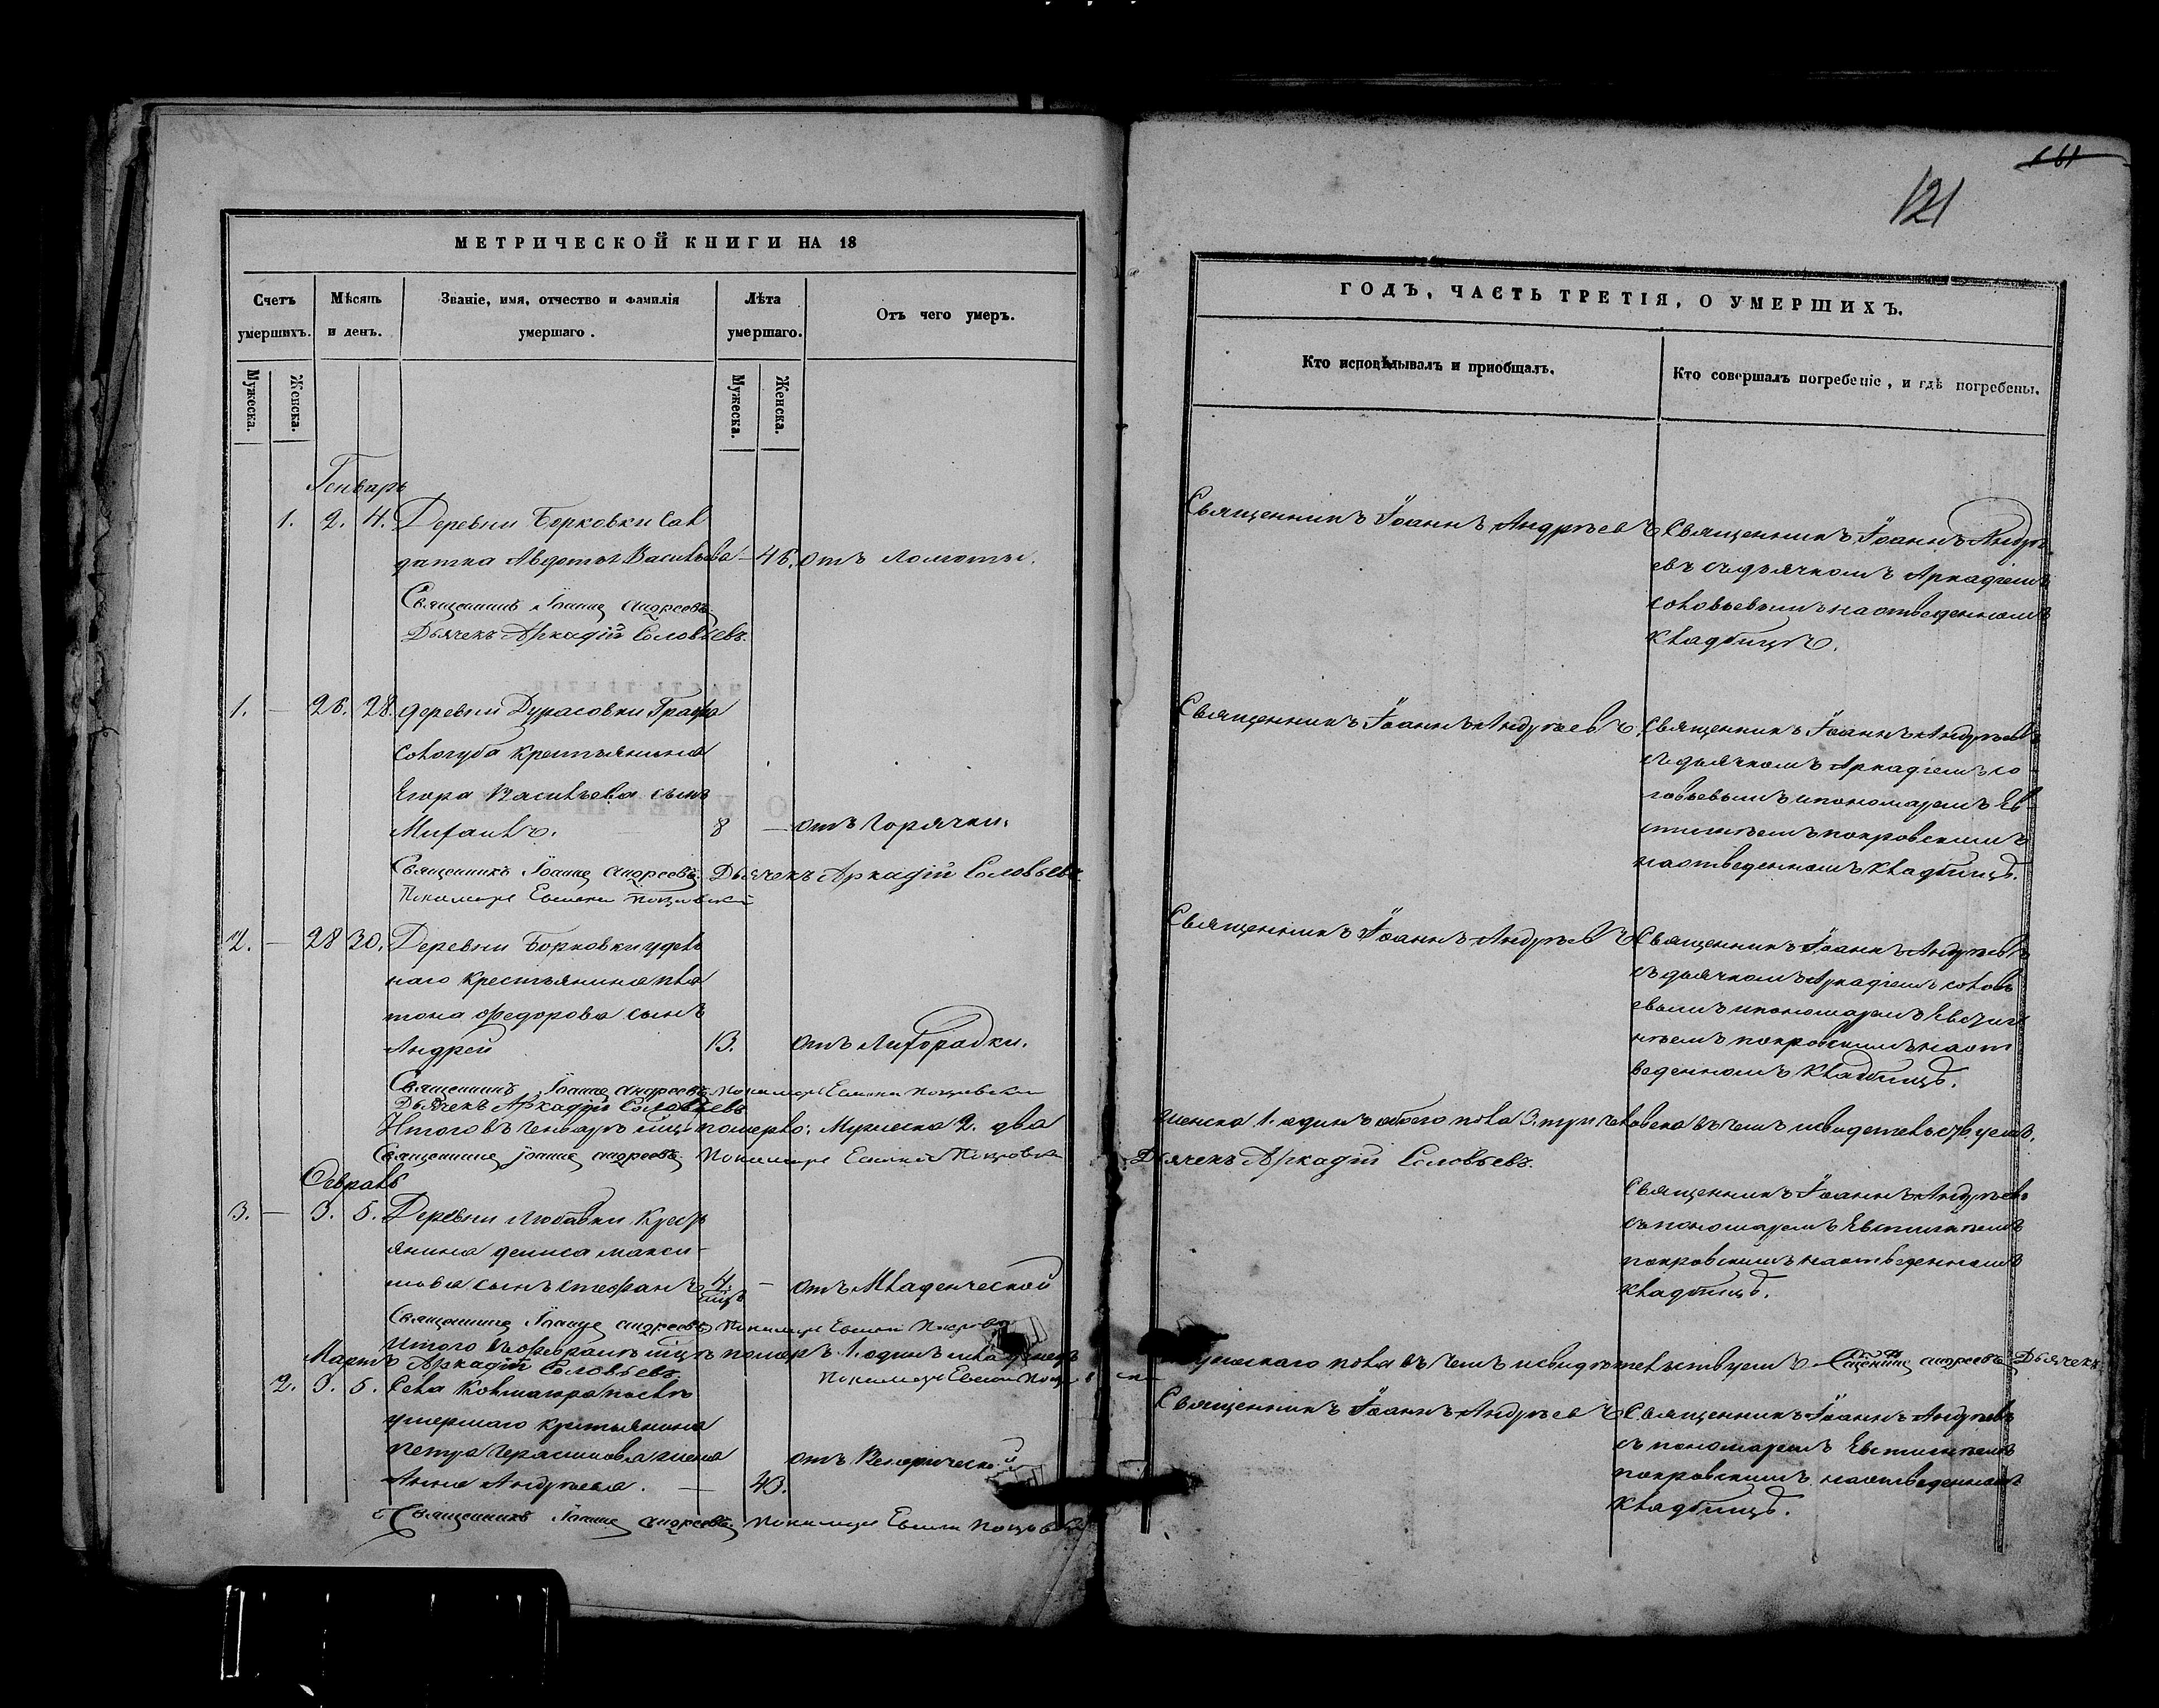 161
121
МЕТРИЧЕСКОЙ КНИГИ НА 18
Счетъ умершихъ.
Мѣсяцъ и день.
Званіе, имя, отчество и фамилія умершаго.
Лѣта умершаго.
Отъ чего умеръ.
Мужеска.
Женска.
Мужеска.
Женска.
Генварь
1. 2. 4. Деревни Борковки сол
датка Авдотья Васильева — 46. отъ ломоты.
Священникъ Іоаннъ Андреевъ
Дьячекъ Аркадій Соловьевъ.
1. — 26. 28. деревни Дурасовки Графа
Сологуба крестьянина
Егора Васильева сынъ
Михаилъ. 8 — отъ горячки.
Священникъ Іоаннъ Андреевъ. Дьячекъ Аркадій Соловьевъ.
Пономарь Покровскій
2. — 28 30. Деревни Борковки удѣль
наго крестьянина Пла
тона Федорова сынъ
Андрей 13. отъ лихорадки.
Священникъ Іоаннъ Андреевъ Пономарь Покровскій
Дьячекъ Аркадій Соловьевъ
Итого въ Генварѣ мцѣ померло: Мужеска 2. два
Священникъ Іоаннъ Андреевъ. Пономарь Покровскій
Февраль
3. — 3. 5. Деревни Любавки крест
янина Дениса Макси-
мова сынъ Стефанъ 4. мцъ — отъ младенческой
Священникъ Іоаннъ Андреевъ Пономарь Покровскій
Итого въ Февралѣ мцѣ померъ 1. одинъ
Мартъ Аркадій Соловьевъ.
Пономарь
2. 3. 5. Села Колтмагора послѣ
умершаго крестьянина
Петра Герасимова жена
Анна Андреева. — 43. отъ Венерической
Священникъ Іоаннъ Андреевъ. Пономарь Покровскій
ГОДЪ, ЧАСТЬ ТРЕТІЯ, О УМЕРШИХЪ.
Кто исповѣдывалъ и пріобщалъ.
Кто совершалъ погребеніе, и гдѣ погребены.
Священникъ Іоаннъ Андрѣевъ
Священникъ Іоаннъ Андрѣ
евъ съ дьячкомъ Аркадіемъ
Соловьевымъ на отведенномъ
кладбищѣ.
Священникъ Іоаннъ Андрѣевъ.
Священникъ Іоаннъ Андрѣевъ
съ дьячкомъ Аркадіемъ Со-
ловьевымъ и пономаремъ Ев-
стигнѣемъ Покровскимъ
на отведенномъ кладбищѣ.
Священникъ Іоаннъ Андрѣевъ
Священникъ Іоаннъ Андрѣевъ
съ дьячкомъ Аркадіемъ Соловь
евымъ и пономаремъ Евстиг
нѣемъ Покровскимъ на от
веденномъ кладбищѣ.
женска 1. одинъ обоего пола 3. три человека въ чемъ и свидетельствуемъ.
Дьячекъ Аркадій Соловьевъ.
Священникъ Іоаннъ Андрѣевъ
съ пономаремъ Евстигнѣемъ
Покровскимъ на отведенномъ
кладбищѣ.
мужескаго пола въ чемъ и свидѣтельствуемъ Священникъ Андреевъ Дьячекъ
Священникъ Іоаннъ Андрѣевъ
Священникъ Іоаннъ Андрѣевъ
съ пономаремъ Евстигнѣемъ
Покровскимъ на отведенномъ
кладбищѣ.